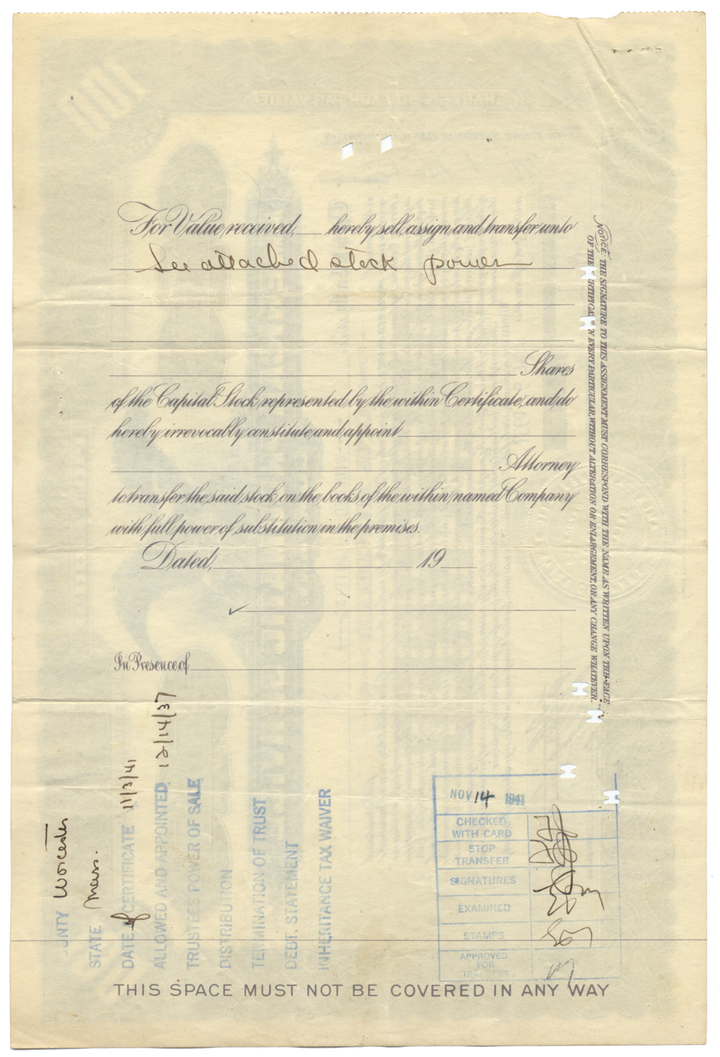 For Value received, hereby sell, assign and transfer unto
See attached stock power
Shares
of the Capital Stock represented by the within Certificate, and do
hereby irrevocably constitute and appoint
Attorney
to transfer the said stock on the books of the within named Company
with full power of substitution in the premises.
Dated, 19
In Presence of
NOTICE: THE SIGNATURE TO THIS ASSIGNMENT MUST CORRESPOND WITH THE NAME AS WRITTEN UPON THE FACE
OF THE CERTIFICATE IN EVERY PARTICULAR, WITHOUT ALTERATION OR ENLARGEMENT, OR ANY CHANGE WHATEVER.
UNTY Worcester
STATE Mass.
DATE of CERTIFICATE 11/3/41
ALLOWED AND APPOINTED 12/14/37
TRUSTEES POWER OF SALE
DISTRIBUTION
TERMINATION OF TRUST
DEBT. STATEMENT
INHERITANCE TAX WAIVER
NOV 14 1941
CHECKED
WITH CARD
STOP
TRANSFER
SIGNATURES
EXAMINED
STAMPS
APPROVED
FOR
TRANSFER
THIS SPACE MUST NOT BE COVERED IN ANY WAY